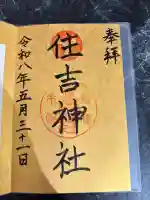 奉拝
住吉神社
令和八年五月三十一日